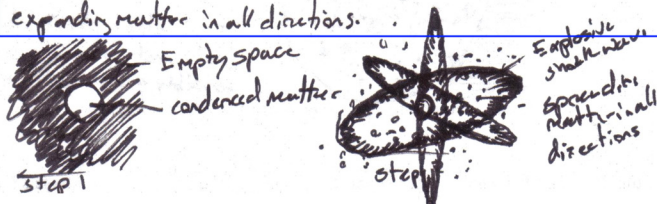 expanding matter in all directions.
Empty space
condensed matter
step 1
step
Explosive
shock wave
spreading
matter in all
directions